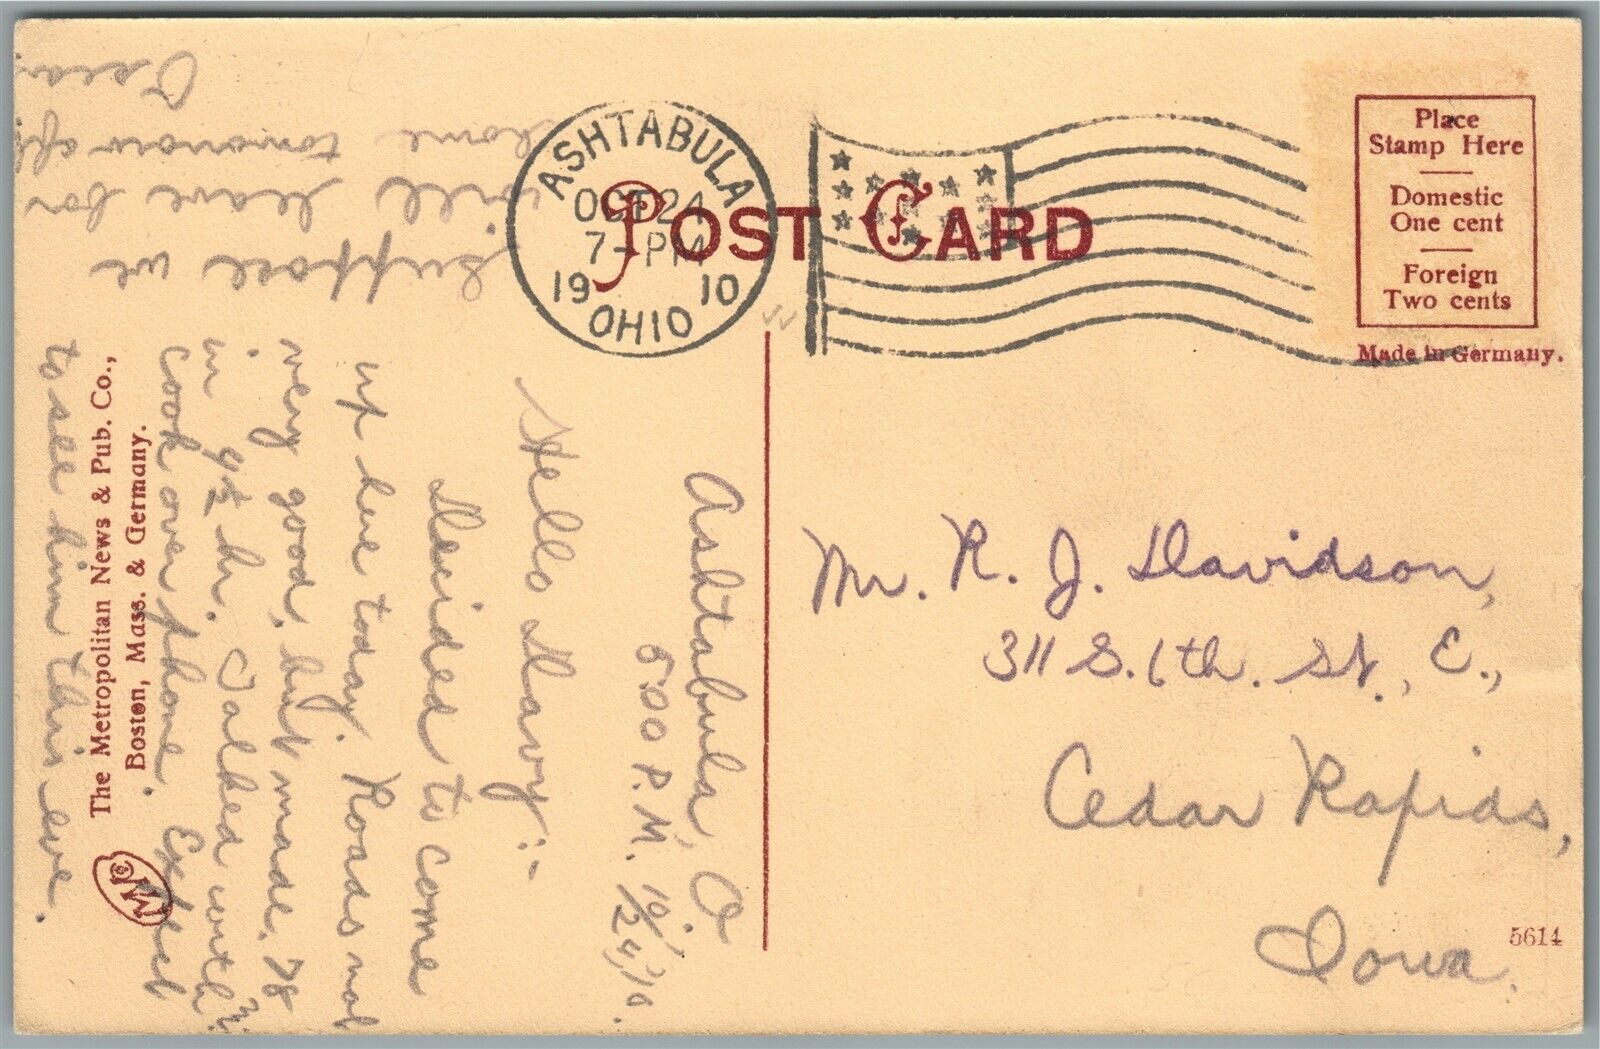 POST CARD
ASHTABULA
OCT 24
7-PM
1910
OHIO
Place
Stamp Here
Domestic
One cent
Foreign
Two cents
Made in Germany.
The Metropolitan News & Pub. Co.,
Boston, Mass. & Germany.
5614
Ashtabula, O.
5:00 P.M. 10/24/10.
Hello Davy:-
Decided to come
up here today. Roads not
very good, but made 78 mi.
in 4½ hr. Talked with
Cook over phone. Expect
to see him this eve.
Suppose we
will leave for
home tomorrow aft
Mr. R. J. Davidson,
311 S. 6th. St., E.,
Cedar Rapids,
Iowa.